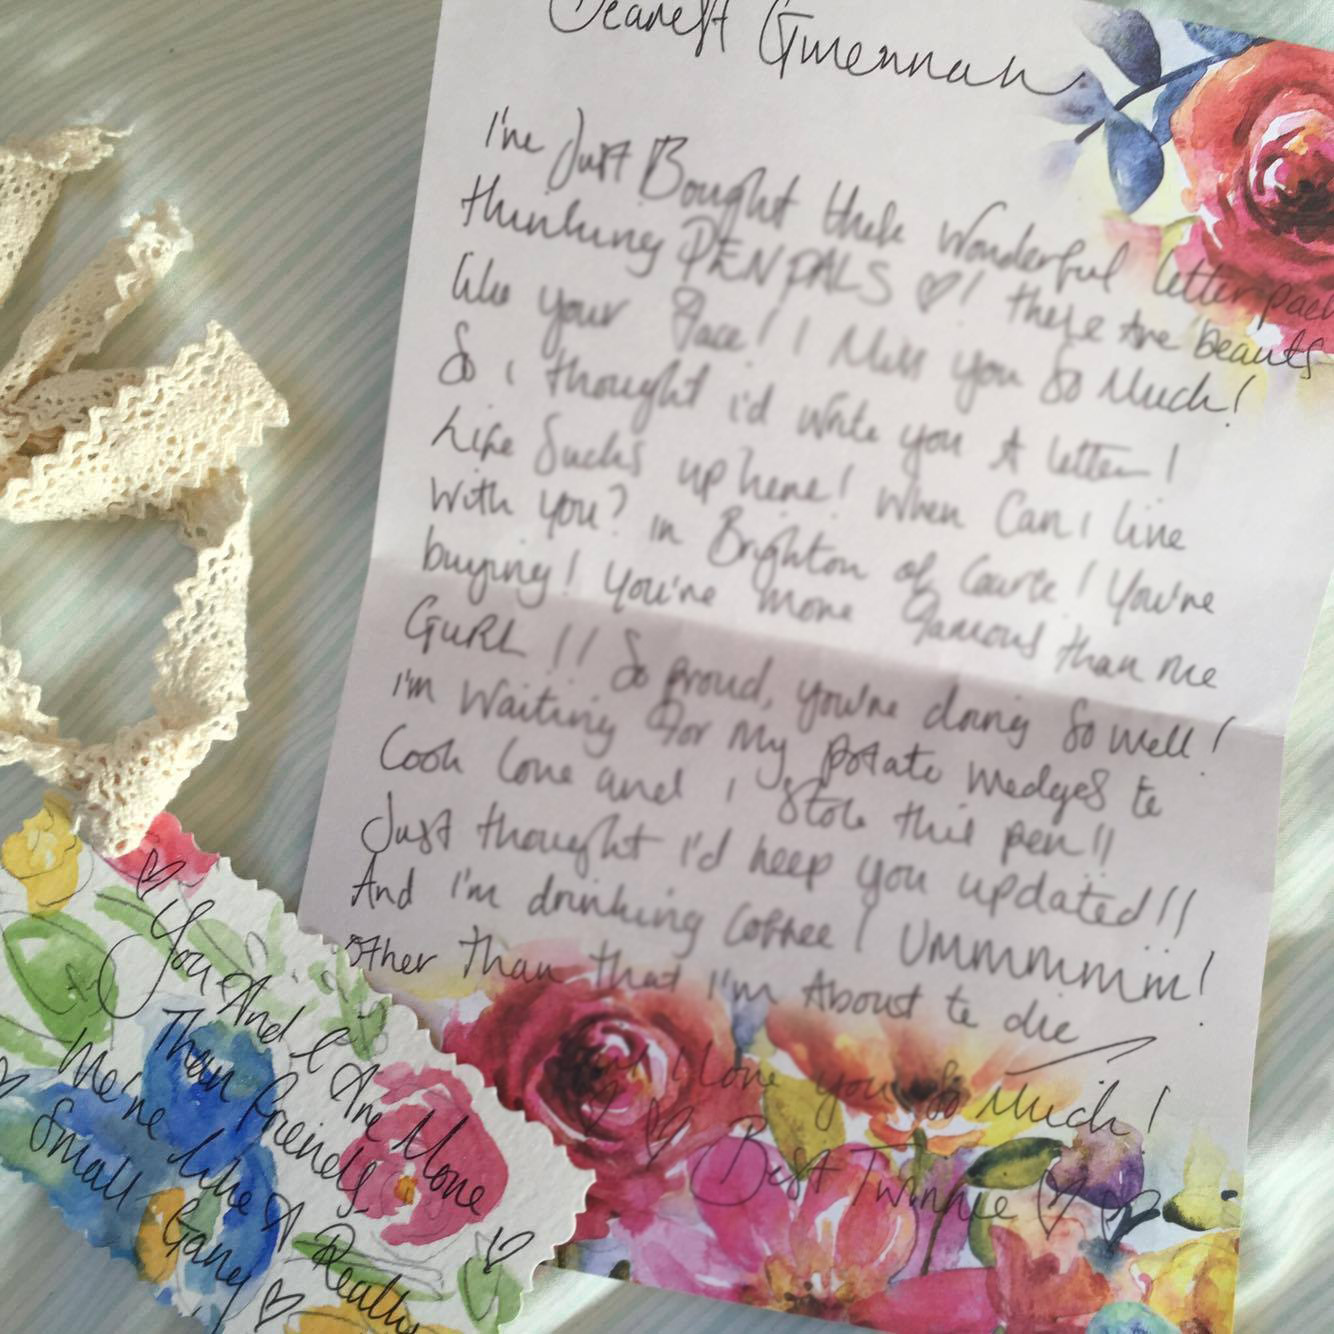 Dearest Gwennan
I've Just Bought these Wonderful letter pack
thinking PENPALS ♡! these Are beauts
like your Face! I Miss you So Much!
So i thought i'd write you A letter!
Life Sucks up here! When Can i live
with you? in Brighton of Course! You're
buying! You're more famous than me
GURL!! So proud, you're doing So well!
I'm Waiting for My potato wedges to
Cook love and i Stole this pen!!
Just thought I'd keep you updated!!
And I'm drinking Coffee! UMMMMMM!
other Than that I'm About to die
I love you So Much!
♡ ♡ Best Twinnie ♡ ♡
♡ You And I Are More
Than friends
We're like A Really ♡
♡ Small Gang ♡